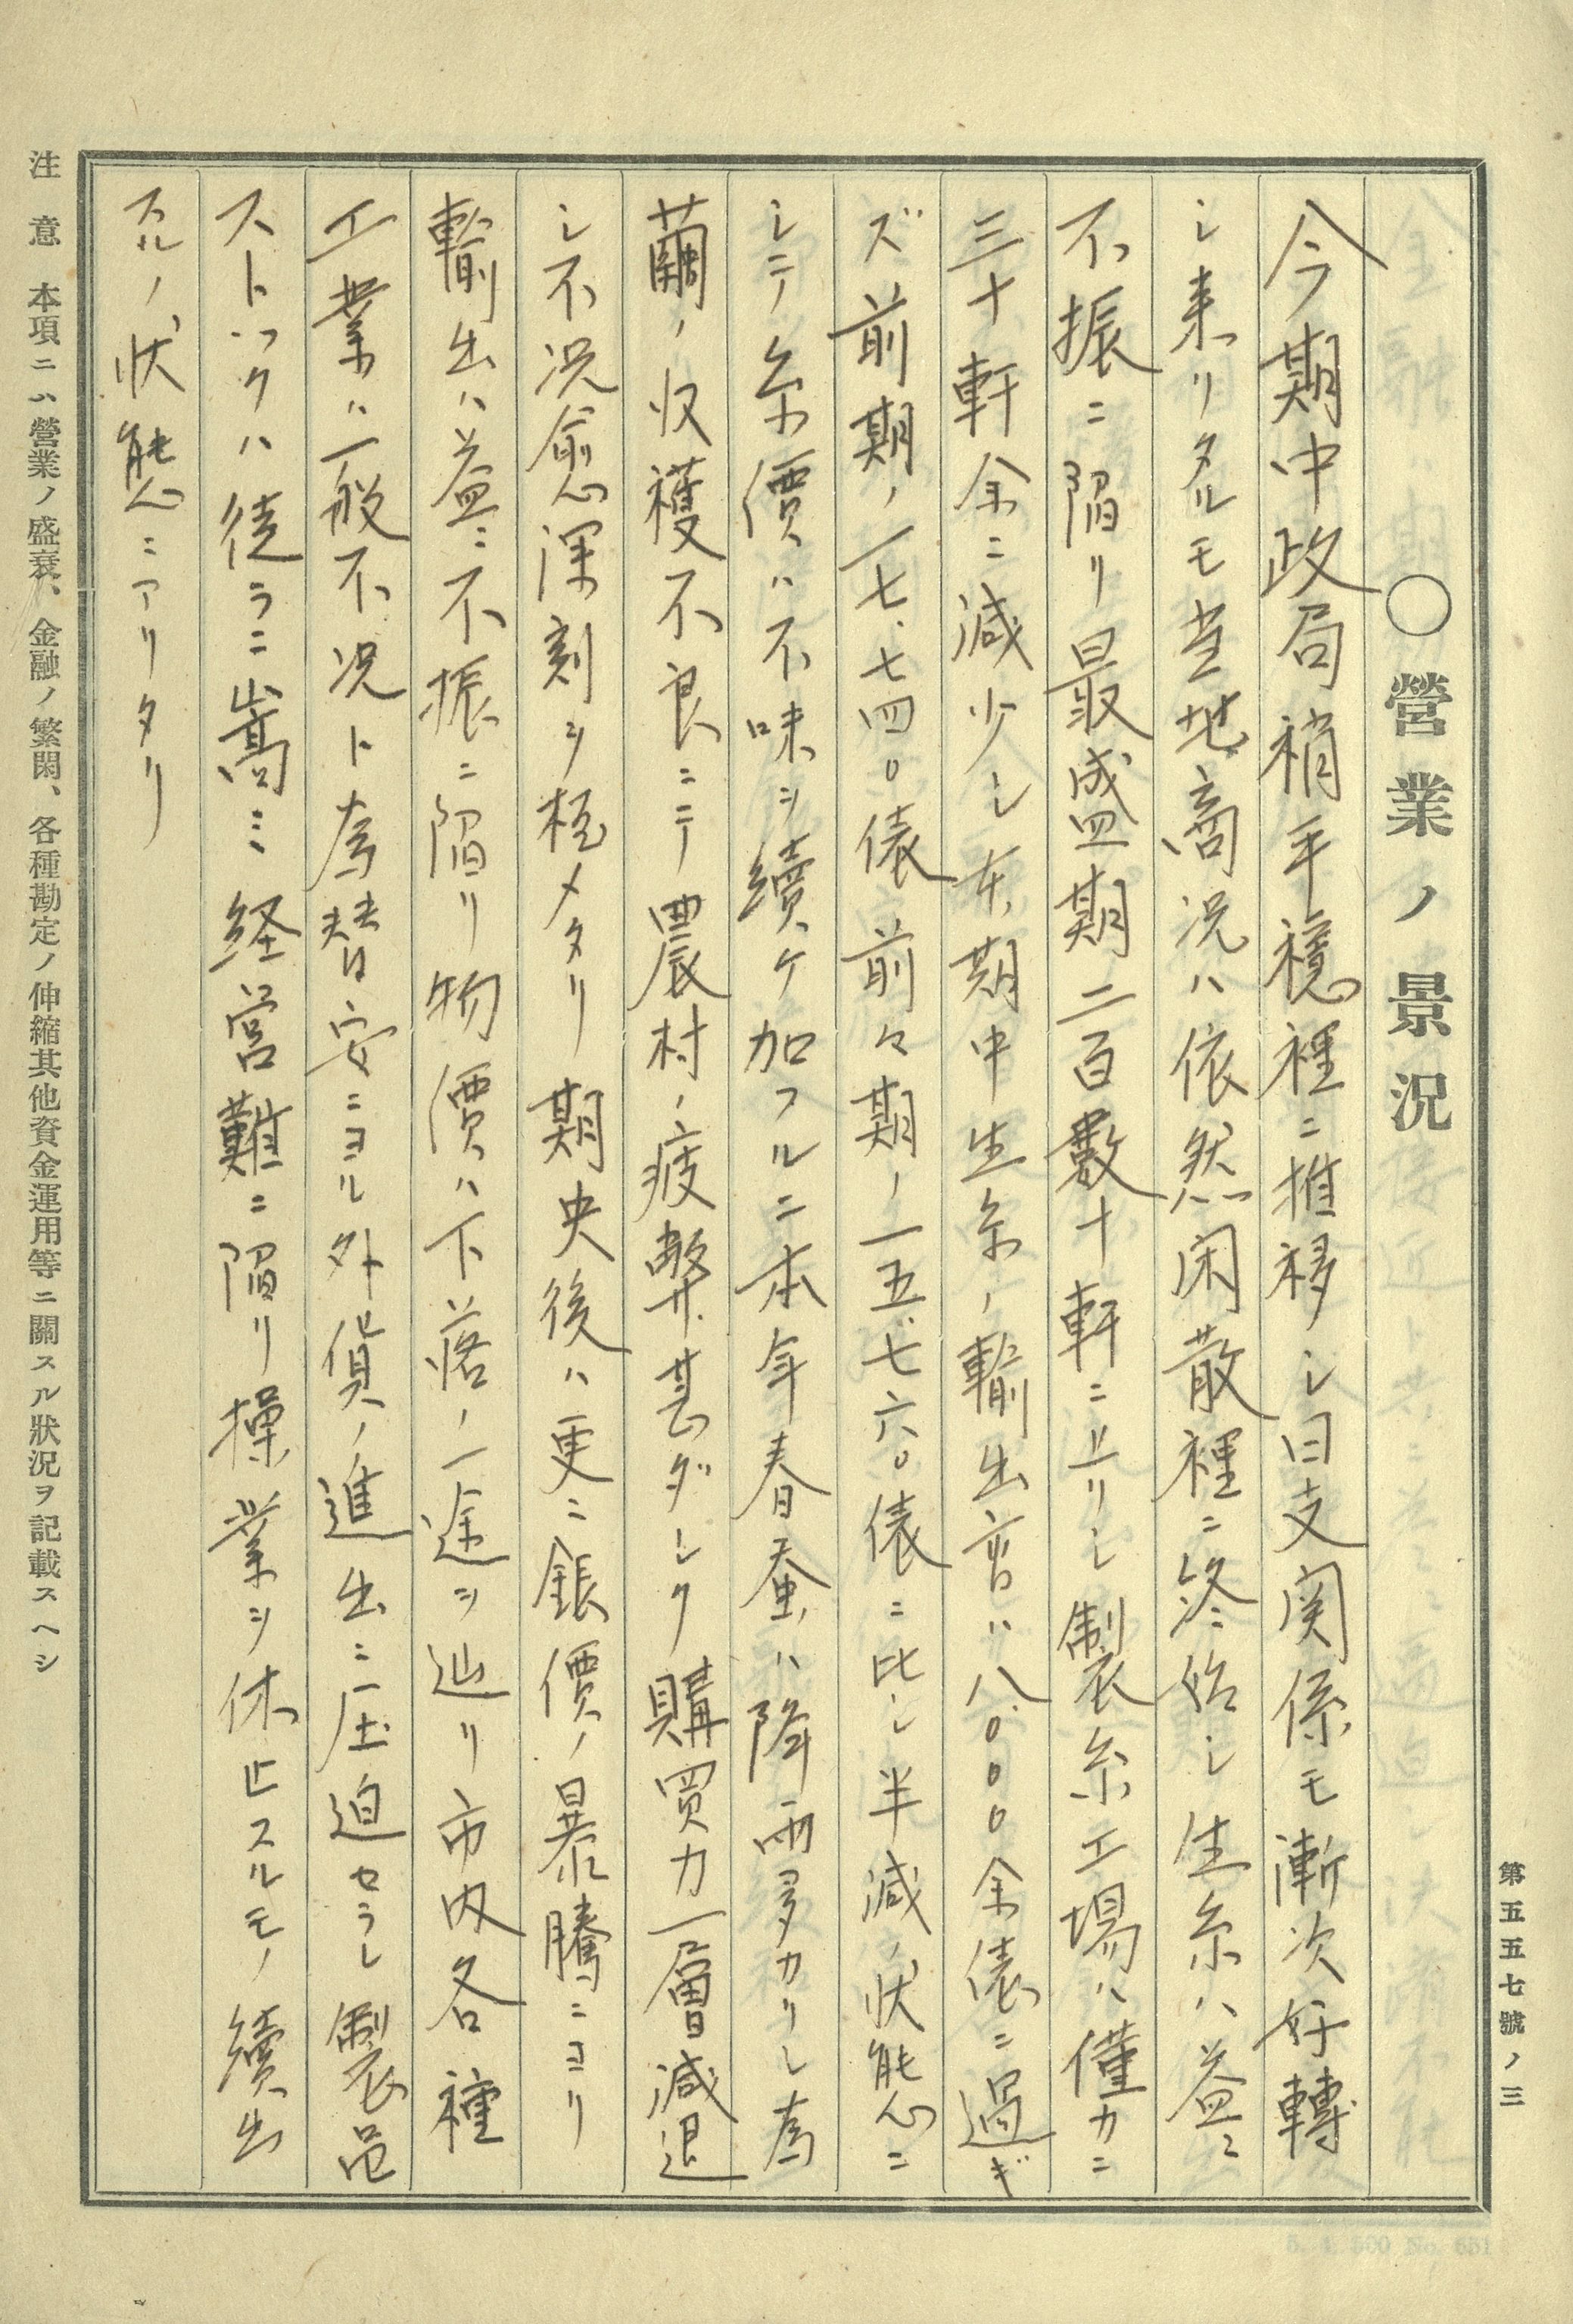 第五五七號ノ三
○營業ノ景況
今期中政局稍平穏裡ニ推移シ日支関係モ漸次好轉
シ来リタルモ当地商況ハ依然閑散裡ニ終始シ生糸ハ益々
不振ニ陥リ最盛期二百数十軒ニ上リシ製糸工場ハ僅カニ
三十軒余ニ減少シ本期中生糸ノ輸出高ハ八、〇〇〇余俵ニ過ギ
ズ前期ノ一七、七四〇俵前々期ノ一五、七六〇俵ニ比シ半減ノ状態ニ
シテ糸價ハ不味ヲ續ケ加フルニ本年春蚕ハ降雨多カリシ為
繭ノ収穫不良ニテ農村ノ疲弊甚ダシク購買力一層減退
シ不況愈深刻ヲ極メタリ期央後ハ更ニ銀價ノ暴騰ニヨリ
輸出ハ益々不振ニ陥リ物價ハ下落ノ一途ヲ辿リ市内各種
工業ハ一般不況ト為替安ニヨル外貨ノ進出ニ圧迫セラレ製品
ストックハ徒ラニ嵩ミ経営難ニ陥リ操業ヲ休止スルモノ續出
スルノ状態ニアリタリ
注意 本項ニハ營業ノ盛衰、金融ノ繁閑、各種勘定ノ伸縮其他資金運用等ニ關スル狀況ヲ記載スヘシ